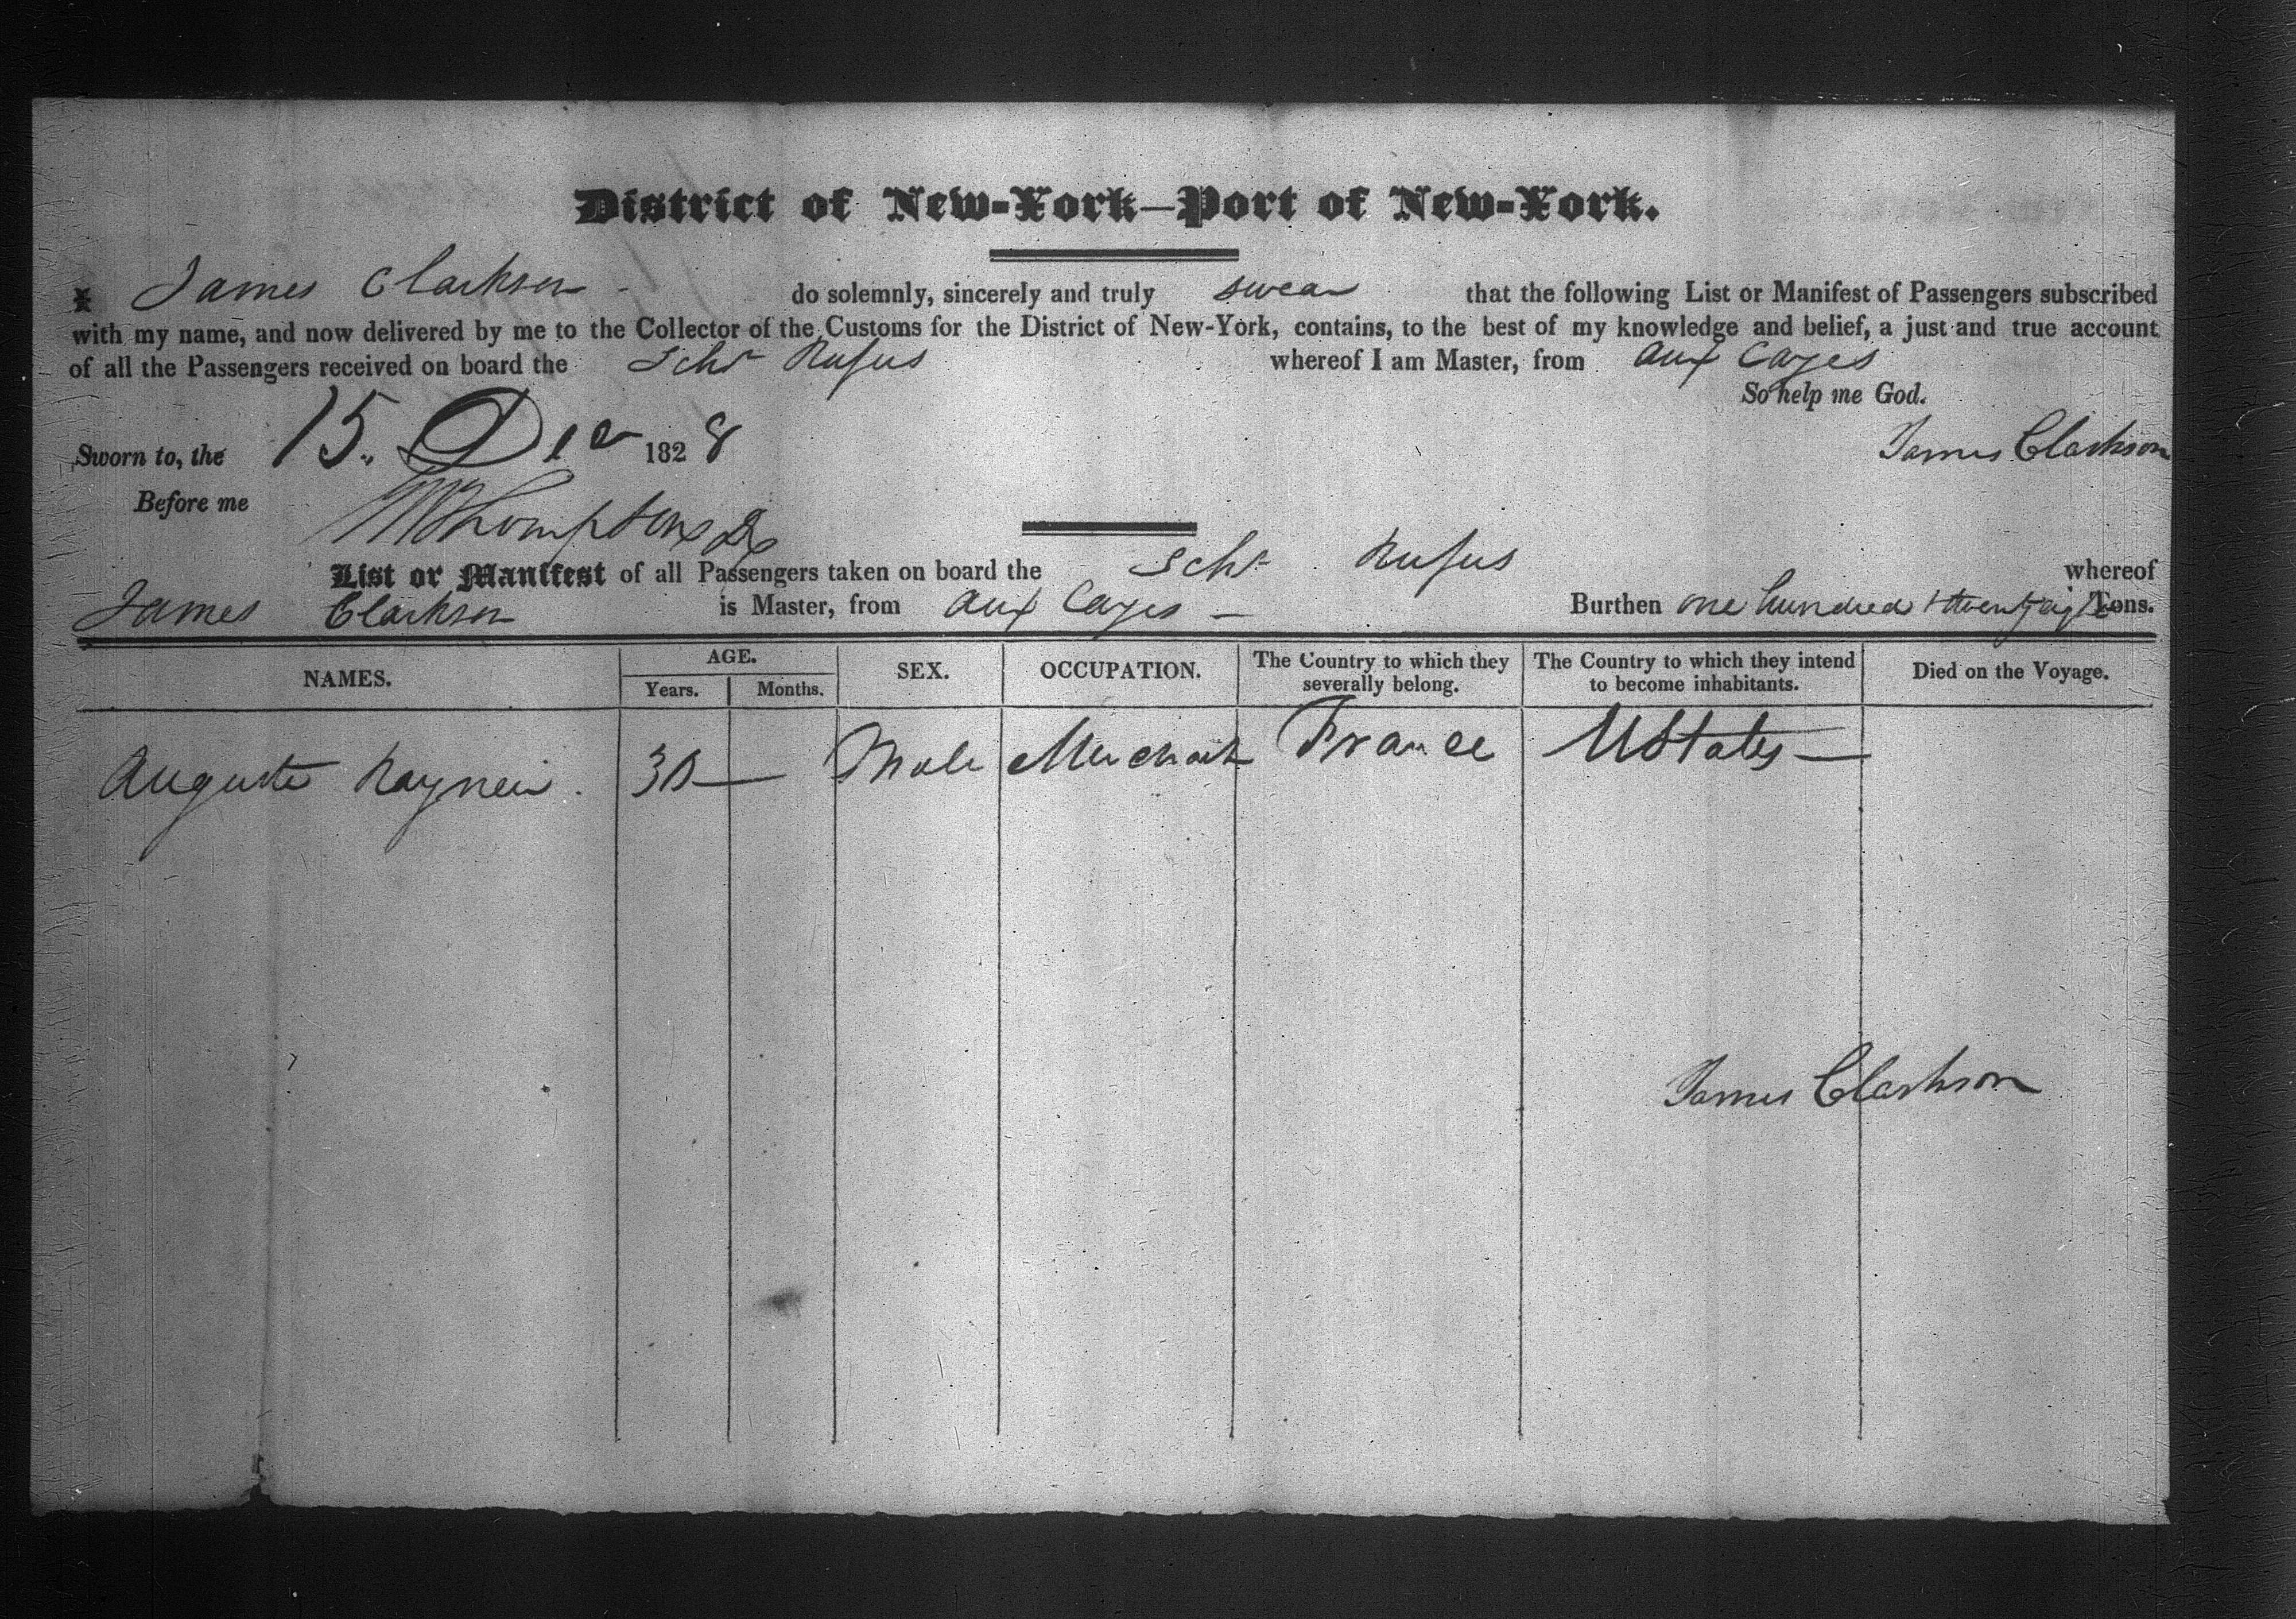 District of New-York—Port of New-York.
I James Clarkson do solemnly, sincerely and truly swear that the following List or Manifest of Passengers subscribed
with my name, and now delivered by me to the Collector of the Customs for the District of New-York, contains, to the best of my knowledge and belief, a just and true account
of all the Passengers received on board the Schr Rufus whereof I am Master, from Aux Cayes
So help me God.
Sworn to, the 15. Dec 1828 James Clarkson
Before me Thompson
List or Manifest of all Passengers taken on board the Schr Rufus whereof
James Clarkson is Master, from Aux Cayes — Burthen one hundred & twenty eight Tons.
NAMES. AGE. Years. Months. SEX. OCCUPATION. The Country to which they severally belong. The Country to which they intend to become inhabitants. Died on the Voyage.
Auguste Male Merchant France UStates —
James Clarkson